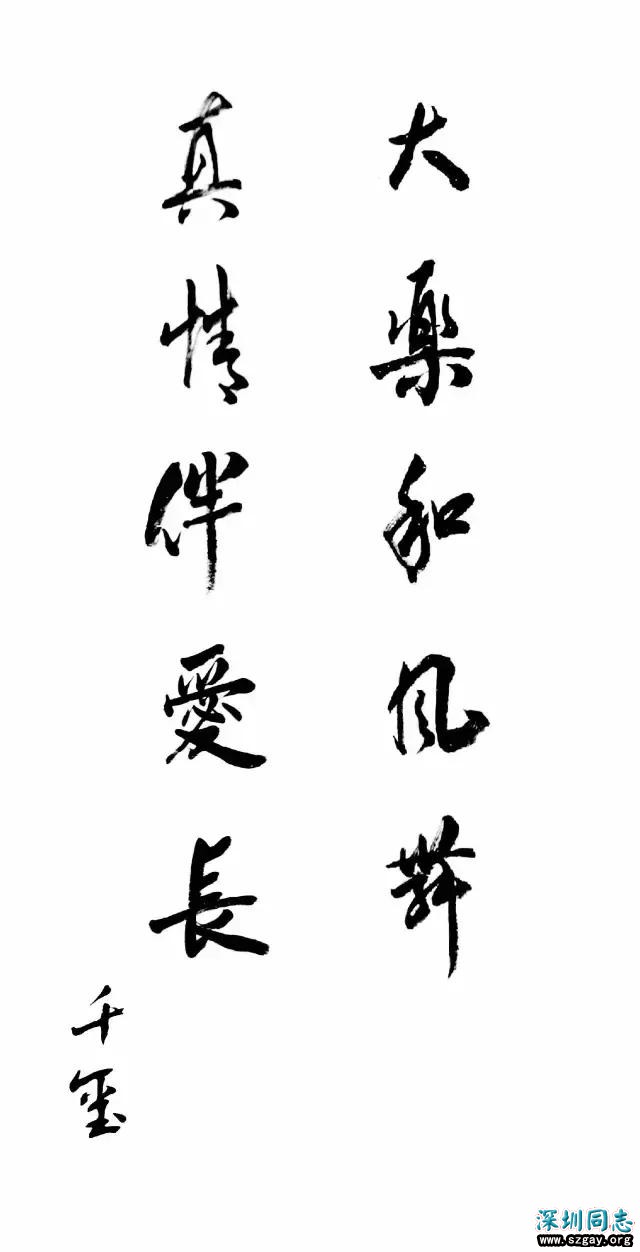 大樂和风舞
真情伴愛長
千玺
深圳同志
www.szgay.org